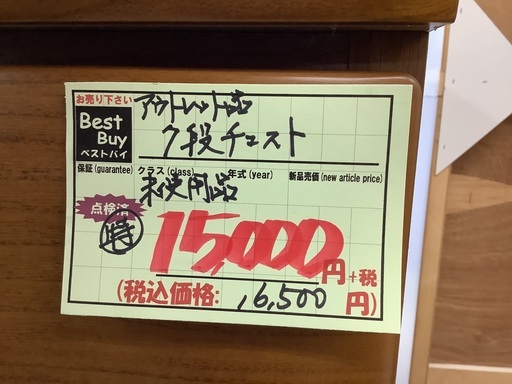 お売り下さい
Best
Buy
ベストバイ
アウトレット品
7段チェスト
保証(guarantee) クラス(class) 年式(year) 新品売価(new article price)
未使用品
点検済
特
15,000円+税
(税込価格: 16,500円)